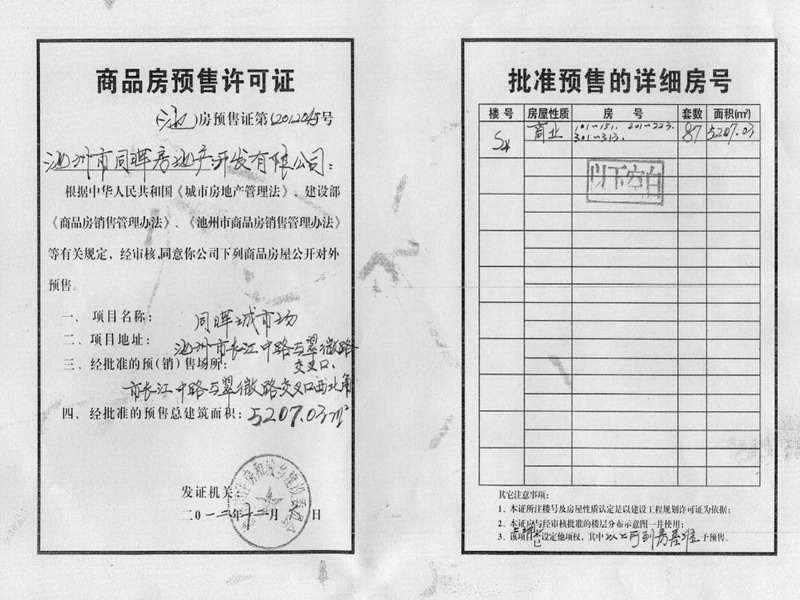 商品房预售许可证
(池)房预售证第(2012045号
池州市同晖房地产开发有限公司:
根据中华人民共和国《城市房地产管理法》、建设部
《商品房销售管理办法》、《池州市商品房销售管理办法》
等有关规定,经审核,同意你公司下列商品房屋公开对外
预售。
一、项目名称: 同晖城市场
二、项目地址: 池州市长江中路与翠微路
交叉口
三、经批准的预(销)售场所:
市长江中路与翠微路交叉口西北角
四、经批准的预售总建筑面积: 5207.03㎡
发证机关:
二0一二年十二月 日
批准预售的详细房号
楼号 房屋性质 房号 套数 面积(㎡)
S4 商业 101~151. 201~223. 301~313. 87 5207.03
以下空白
其它注意事项:
1、本证所注楼号及房屋性质认定是以建设工程规划许可证为依据;
2、本证应与经审核批准的楼层分布示意图一并使用;
3、该项目已设定他项权,其中以上所列房屋准予预售。